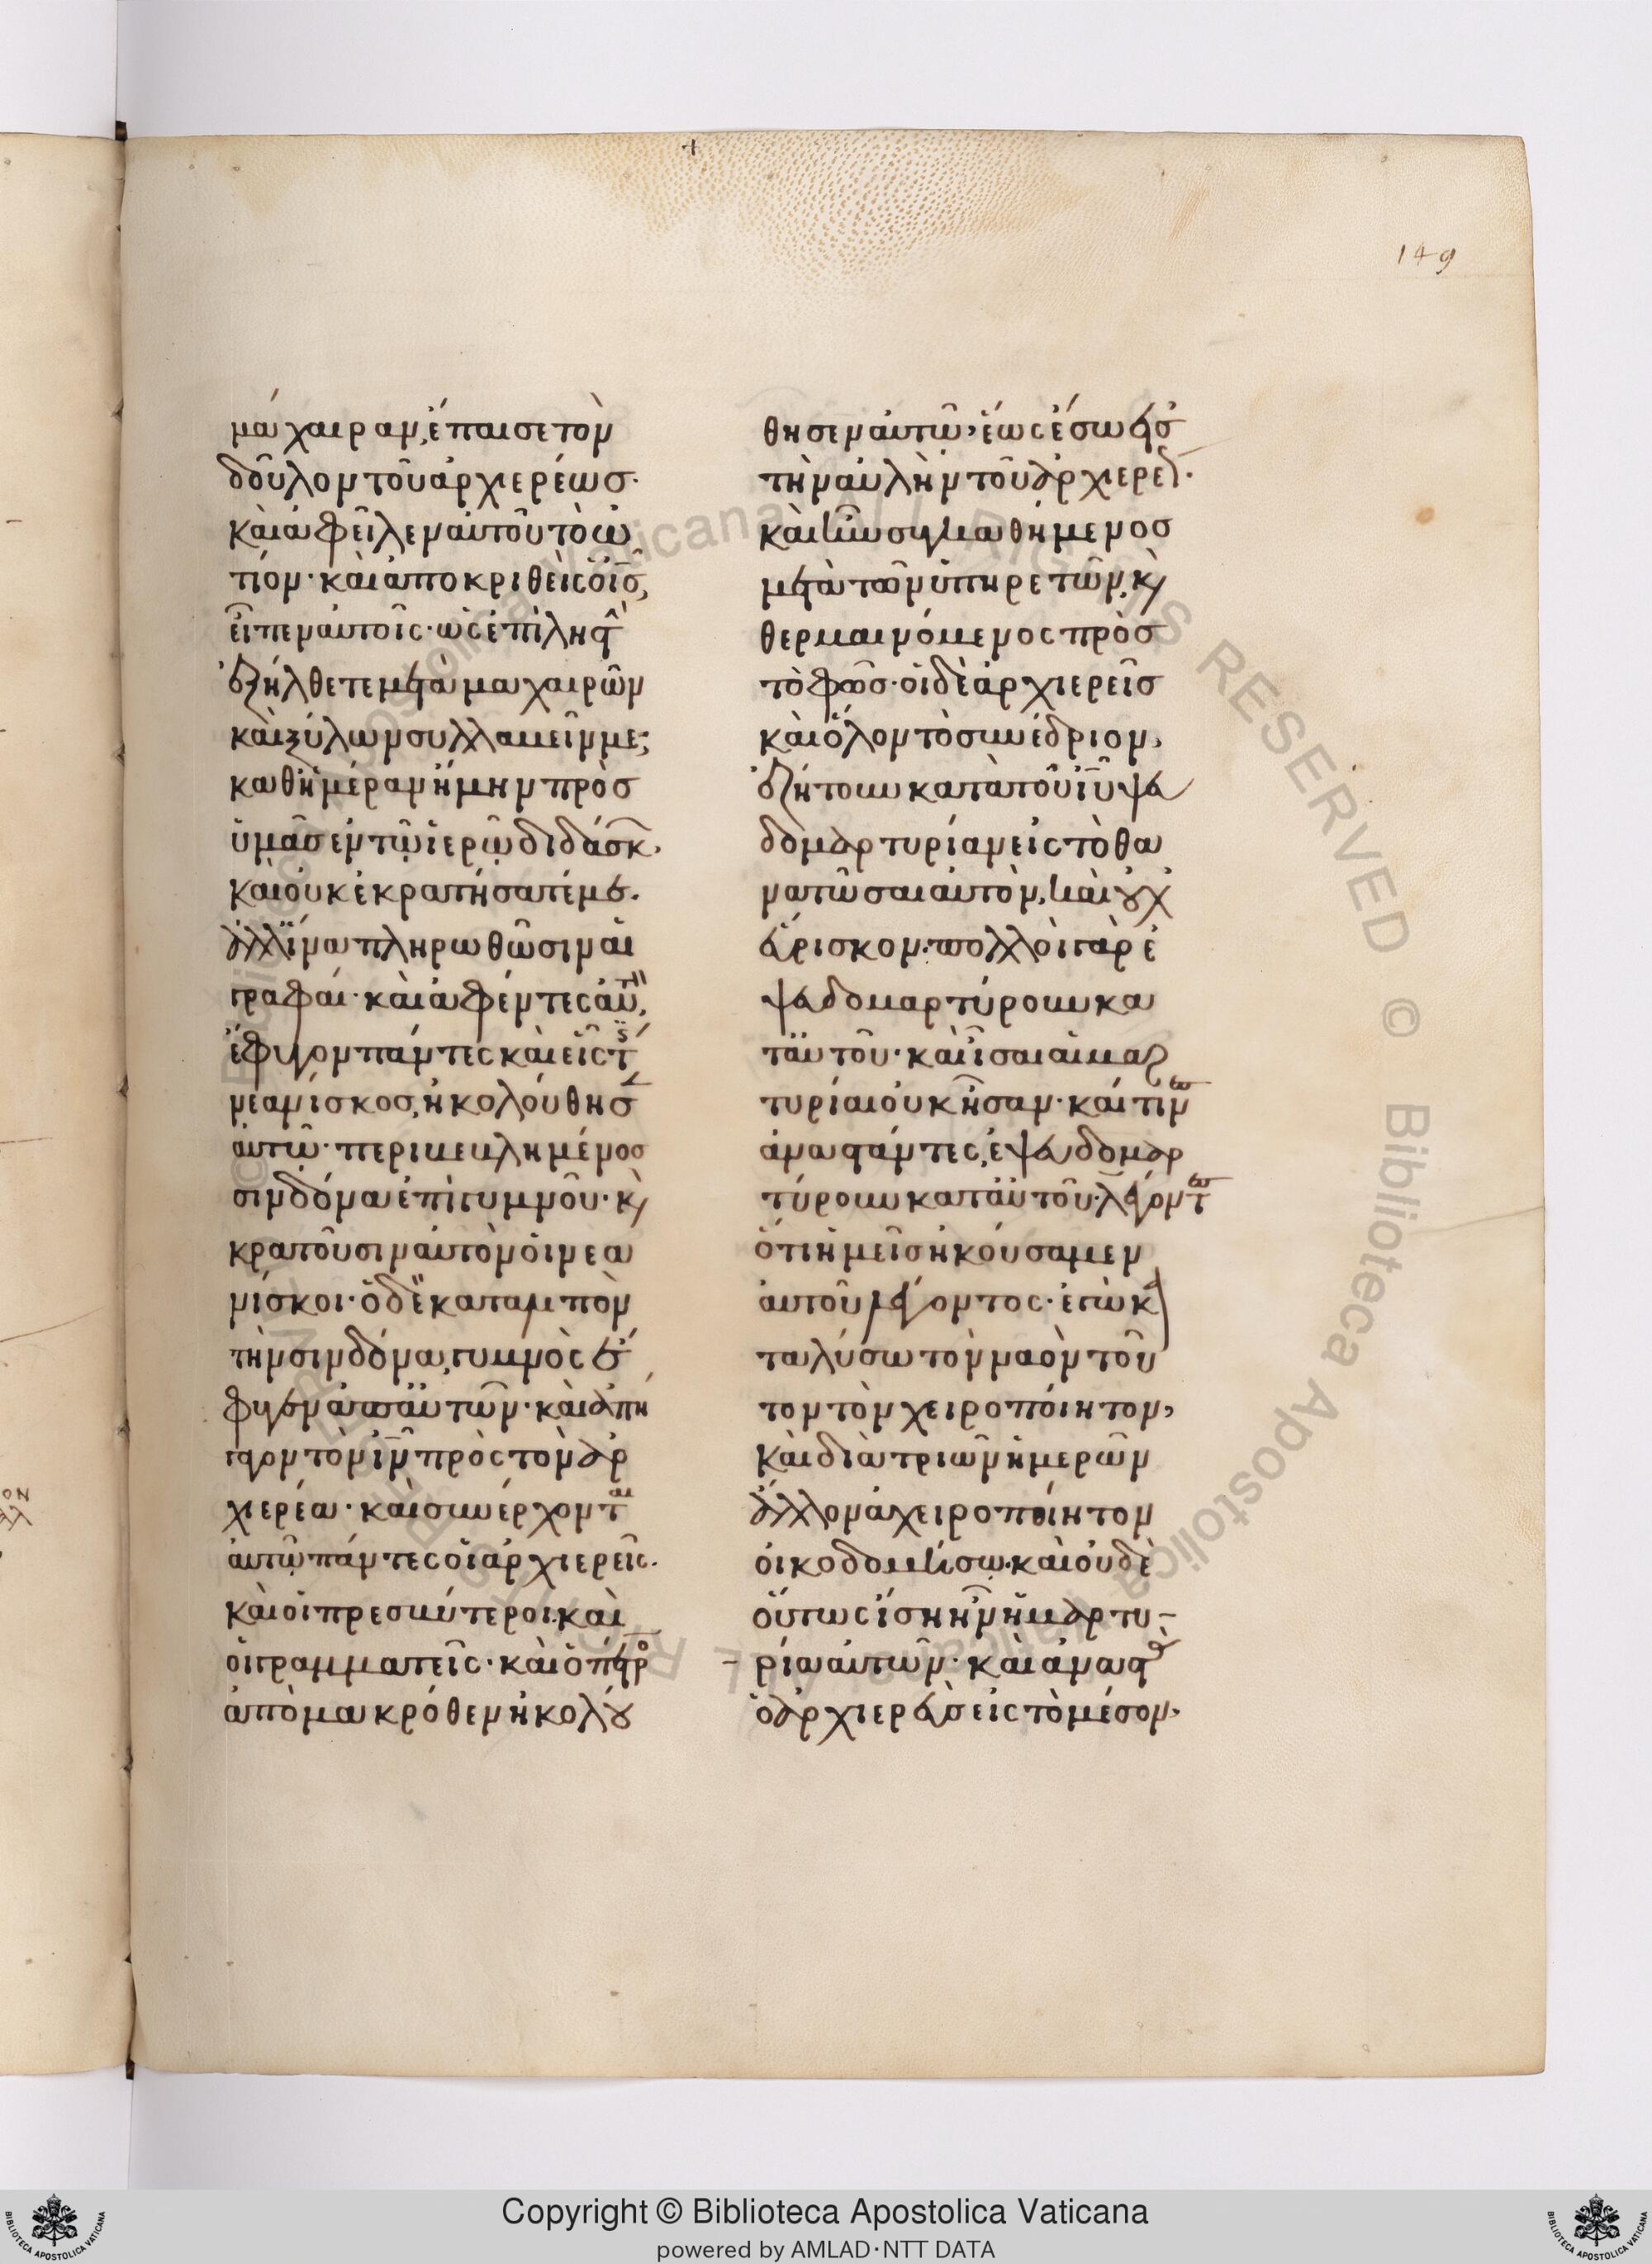 149
μάχαιραν, ἔπαισε τὸν
δοῦλον τοῦ ἀρχιερέως·
καὶ ἀφεῖλεν αὐτοῦ τὸ ὠ
τίον· καὶ ἀποκριθεὶς ὁ ἰς,
εἶπεν αὐτοῖς· ὡς ἐπὶ ληστὴ
ἐξήλθετε μετὰ μαχαιρῶν
καὶ ξύλων συλλαβεῖν με;
καθ ἡμέραν ἤμην πρὸς
ὑμᾶς ἐν τῷ ἱερῷ διδάσκ,
καὶ οὐκ ἐκρατήσατέ με.
ἀλλ ἵνα πληρωθῶσιν αἱ
γραφαί· καὶ ἀφέντες αὐτ,
ἔφυγον πάντες καὶ εἷς τ
νεανίσκος, ἠκολούθησ
αὐτῷ· περιβεβλημένος
σινδόνα ἐπὶ γυμνοῦ· κ
κρατοῦσιν αὐτὸν οἱ νεα
νίσκοι· ὁ δὲ καταλιπὸν
τὴν σινδόνα, γυμνὸς ἔ
φυγεν ἀπ αὐτῶν· καὶ ἀπή
γαγον τὸν ἰν πρὸς τὸν ἀρ
χιερέα· καὶ συνέρχοντ
αὐτῷ πάντες οἱ ἀρχιερεῖς·
καὶ οἱ πρεσβύτεροι καὶ
οἱ γραμματεῖς· καὶ ὁ πέτρο
ἀπὸ μακρόθεν ἠκολού
θησεν αὐτῷ, ἕως ἔσω εἰς
τὴν αὐλὴν τοῦ ἀρχιερέ·
καὶ ἦν συγκαθήμενος
μετὰ τῶν ὑπηρετῶν, κ
θερμαινόμενος πρὸς
τὸ φῶς· οἱ δὲ ἀρχιερεῖς
καὶ ὅλον τὸ συνέδριον,
ἐζήτουν κατὰ τοῦ ἰυ ψευ
δομαρτυρίαν εἰς τὸ θα
νατῶσαι αὐτὸν, καὶ οὐχ
εὕρισκον· πολλοὶ γὰρ ἐ
ψευδομαρτύρουν κα
τ αὐτοῦ· καὶ ἴσαι αἱ μαρ
τυρίαι οὐκ ἦσαν· καί τιν
ἀναστάντες, ἐψευδομαρ
τύρουν κατ αὐτοῦ λέγοντ
ὅτι ἡμεῖς ἠκούσαμεν
αὐτοῦ λέγοντος· ἐγὼ κα
ταλύσω τὸν ναὸν τοῦ
τον τὸν χειροποίητον,
καὶ διὰ τριῶν ἡμερῶν
ἄλλον ἀχειροποίητον
οἰκοδομήσω· καὶ οὐδὲ
οὕτως ἴση ἦν ἡ μαρτυ-
ρία αὐτῶν· καὶ ἀναστὰς
ὁ ἀρχιερεὺς εἰς τὸ μέσον,
Copyright © Biblioteca Apostolica Vaticana
powered by AMLAD·NTT DATA